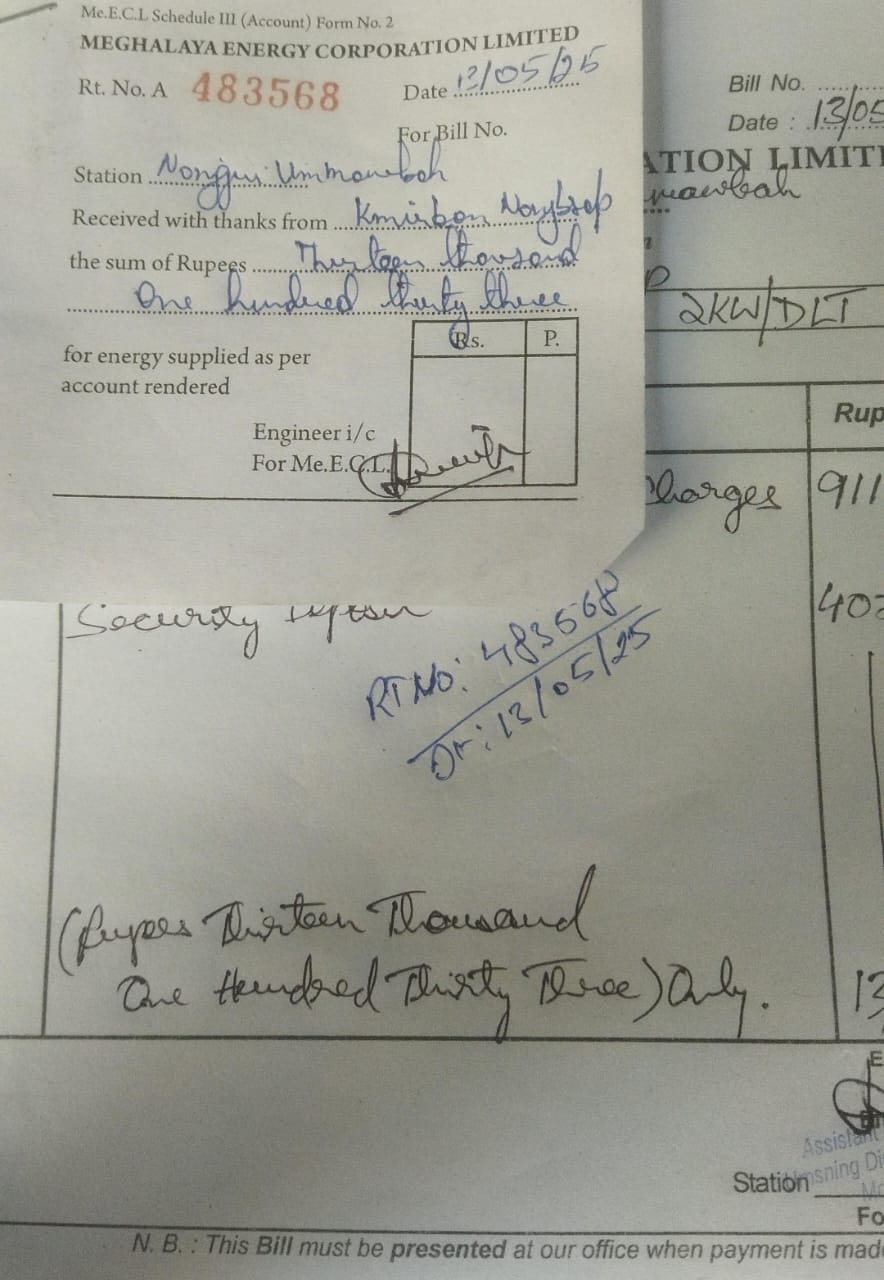 Me.E.C.L Schedule III (Account) Form No. 2
MEGHALAYA ENERGY CORPORATION LIMITED
Rt. No. A 483568 Date 13/05/25
For Bill No.
Station Nongjri Ummawbah
Received with thanks from
the sum of Rupees Thirteen thousand
One hundred thirty three
Rs. P.
for energy supplied as per
account rendered
Engineer i/c
For Me.E.C.L.
Bill No.
Date : 13/05
ATION LIMITE
mawbah
2KW/DLT
Rup
Charges 911
Security 402
RT No: 483568
Dt: 13/05/25
(Rupees Thirteen Thousand
One Hundred Thirty Three) Only. 13
E
Assistant
Umsning Di
Station
Fo
N. B. : This Bill must be presented at our office when payment is made